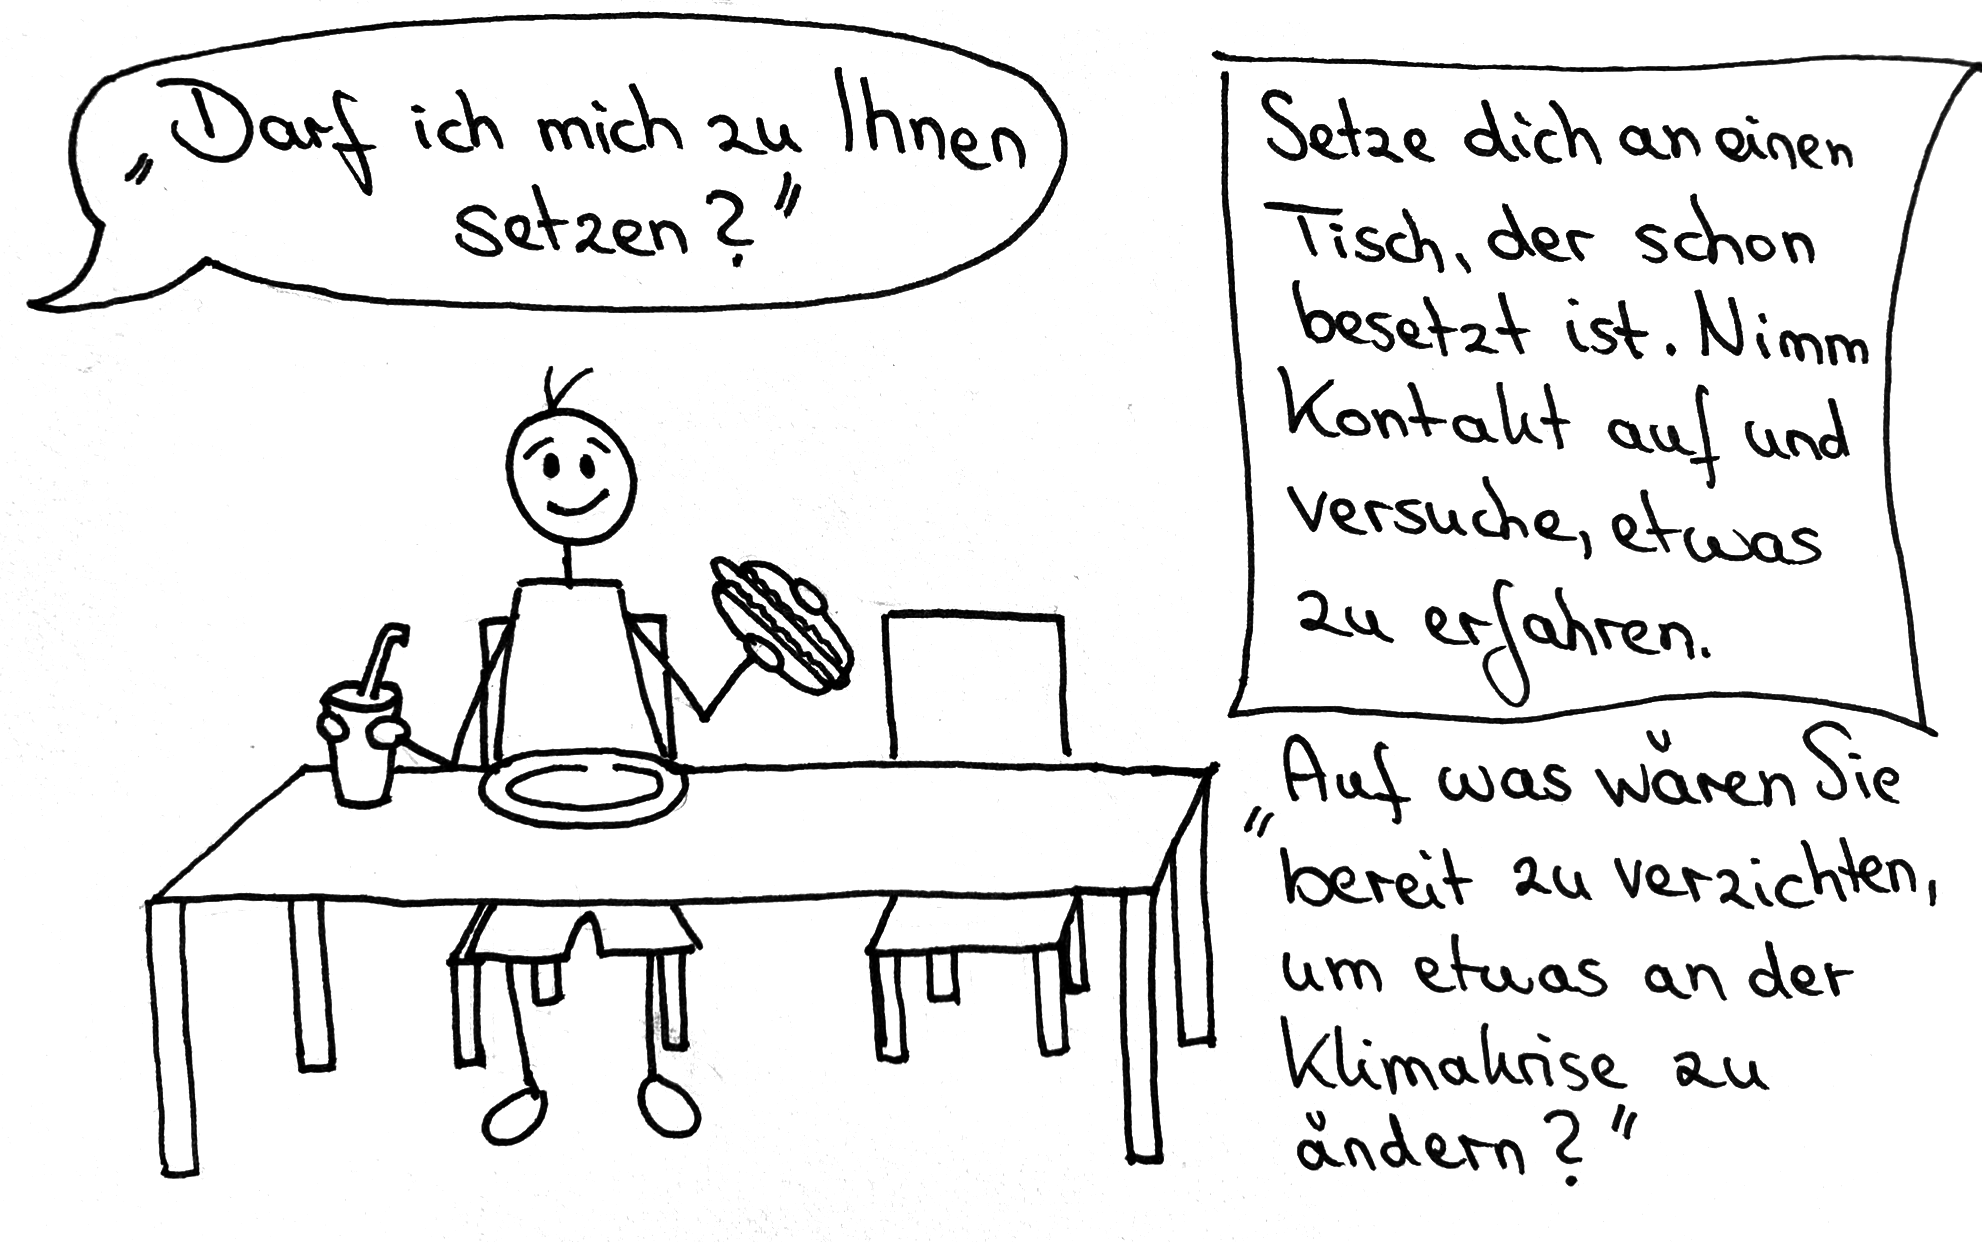 „Darf ich mich zu Ihnen
setzen?"
Setze dich an einen
Tisch, der schon
besetzt ist. Nimm
Kontakt auf und
versuche, etwas
zu erfahren.
„Auf was wären Sie
bereit zu verzichten,
um etwas an der
Klimakrise zu
ändern?"